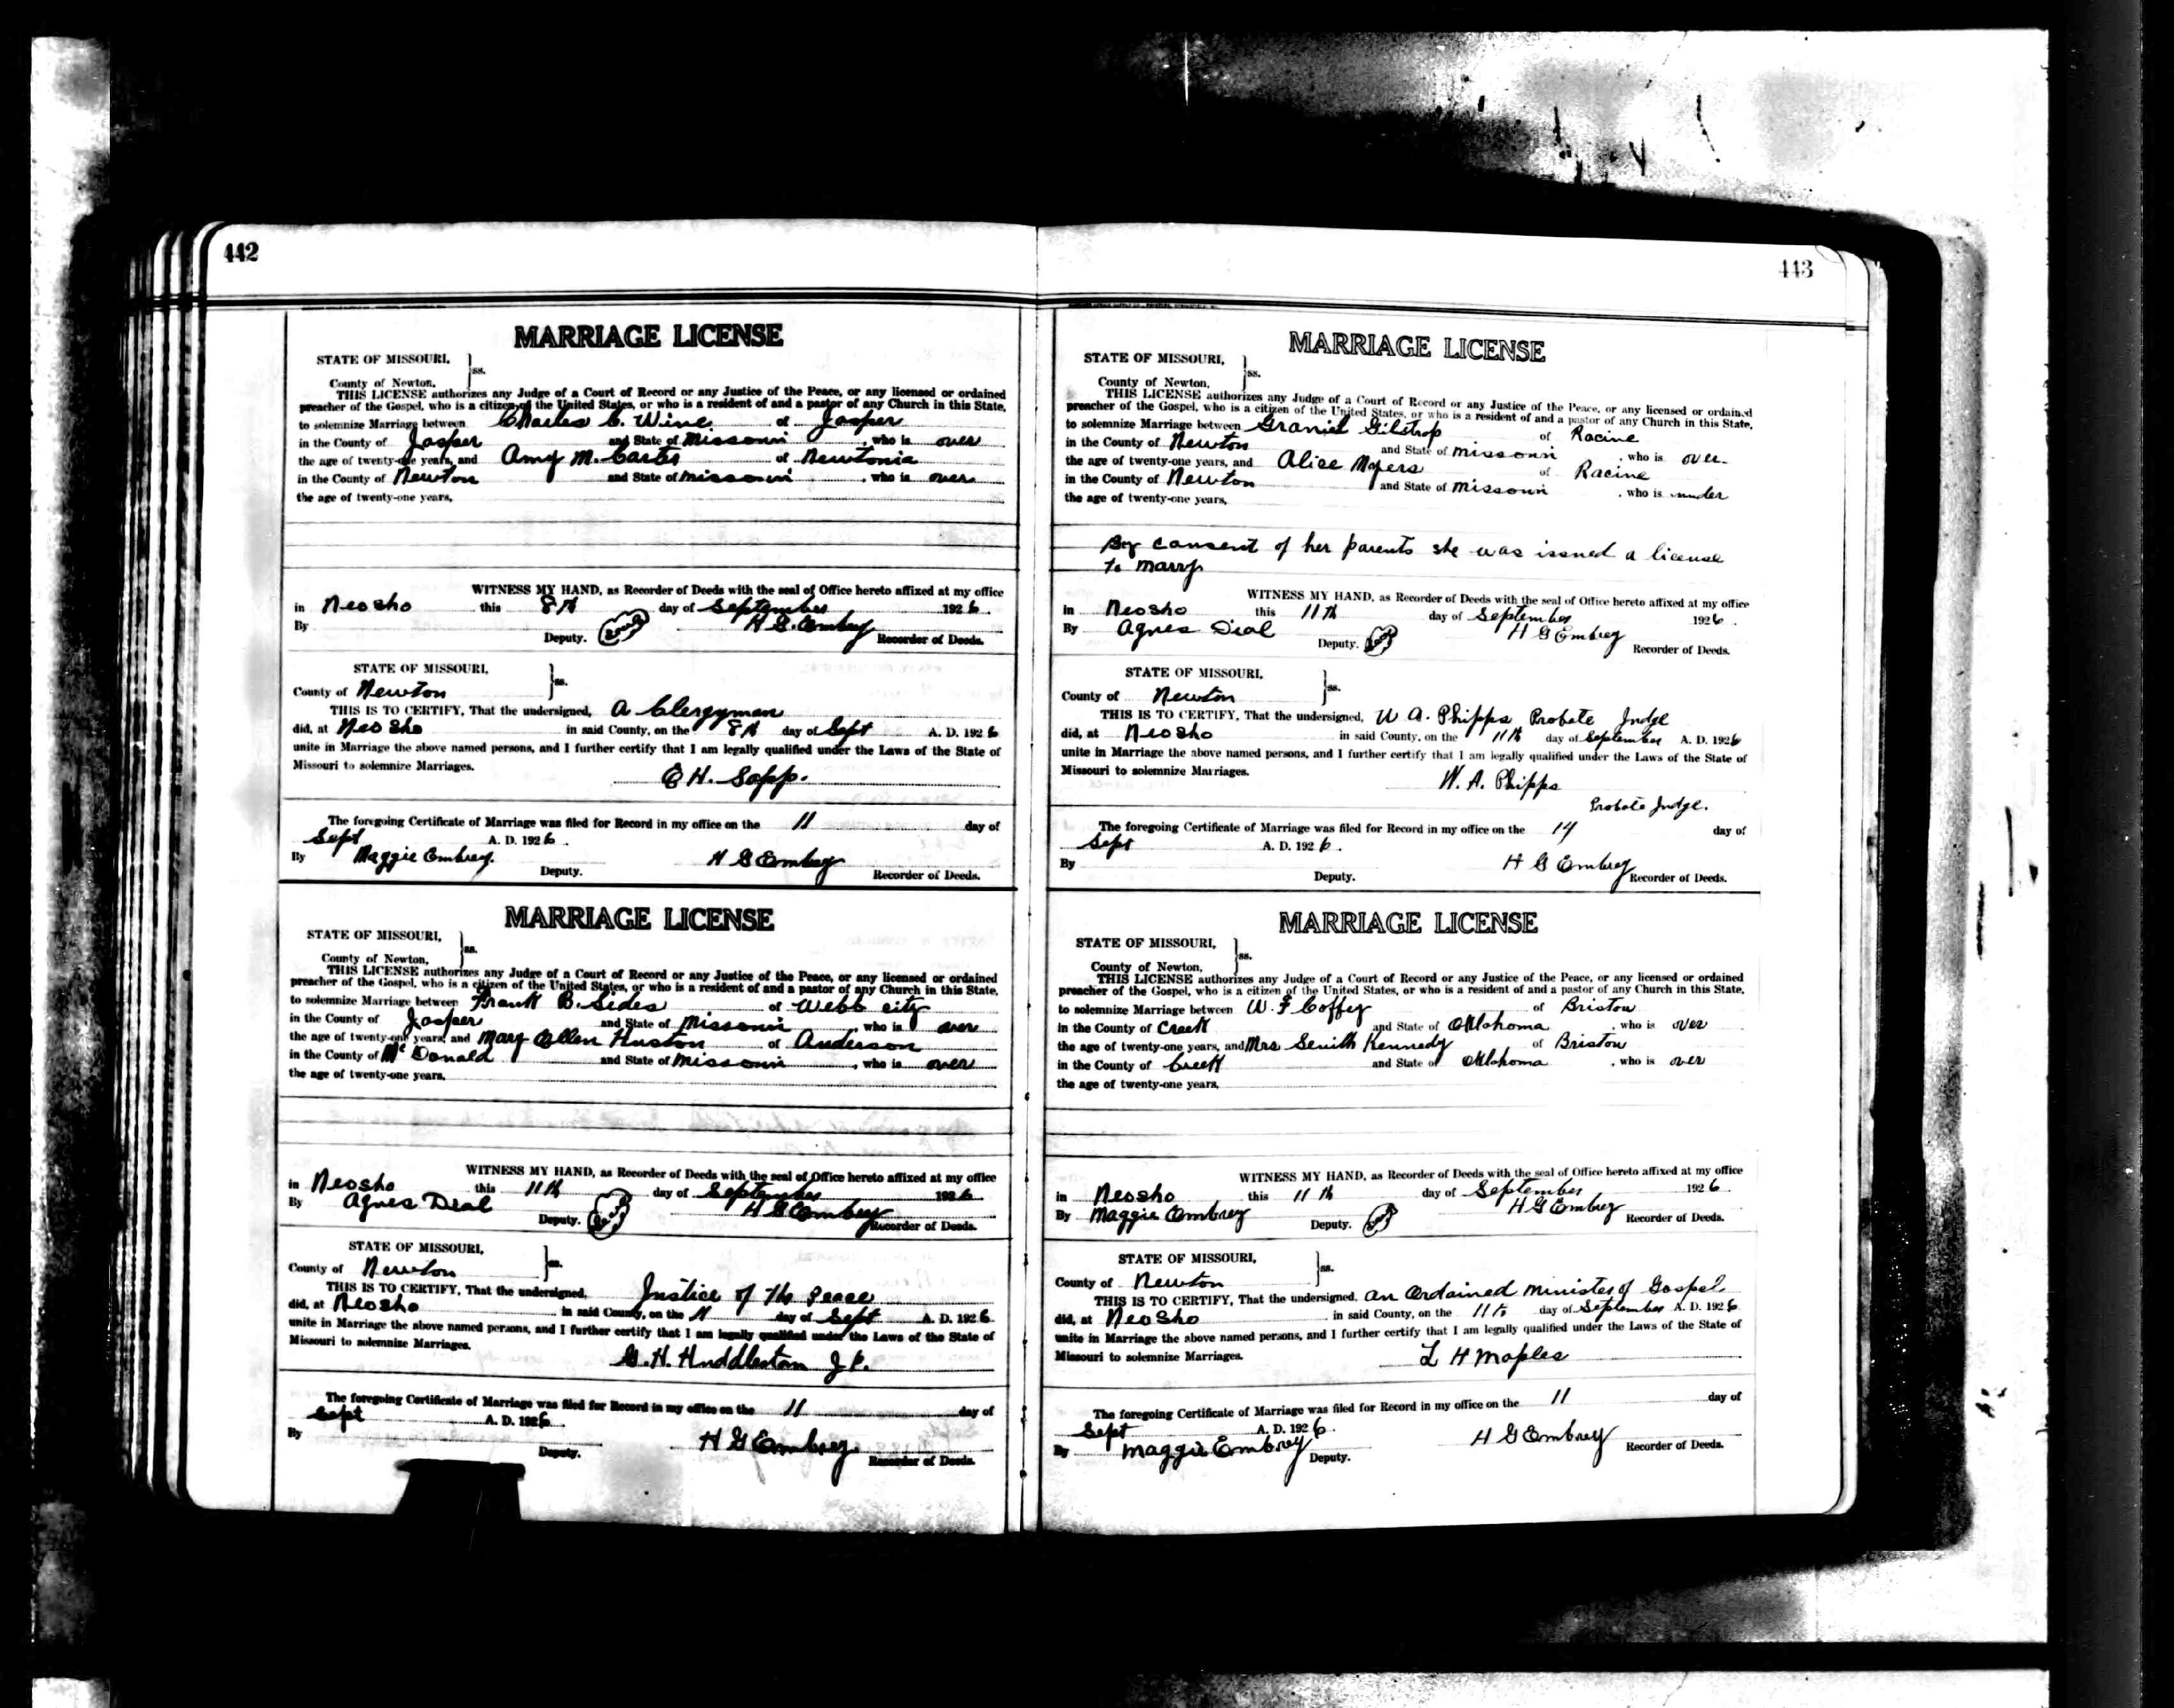 442
MARRIAGE LICENSE
STATE OF MISSOURI, } ss.
County of Newton,
THIS LICENSE authorizes any Judge of a Court of Record or any Justice of the Peace, or any licensed or ordained
preacher of the Gospel, who is a citizen of the United States, or who is a resident of and a pastor of any Church in this State,
to solemnize Marriage between Charles C. Wine of Jasper
in the County of Jasper and State of Missouri, who is over
the age of twenty-one years, and Amy M. Carter of Newtonia
in the County of Newton and State of Missouri, who is over
the age of twenty-one years,
WITNESS MY HAND, as Recorder of Deeds with the seal of Office hereto affixed at my office
in Neosho this 8th day of September 1926.
By Deputy. (Seal) H G. Embrey Recorder of Deeds.
STATE OF MISSOURI, } ss.
County of Newton
THIS IS TO CERTIFY, That the undersigned, A Clergyman
did, at Neosho in said County, on the 8th day of Sept A. D. 1926
unite in Marriage the above named persons, and I further certify that I am legally qualified under the Laws of the State of
Missouri to solemnize Marriages.
E H. Sapp.
The foregoing Certificate of Marriage was filed for Record in my office on the 11 day of
Sept A. D. 1926.
By Maggie Embrey. Deputy. H G Embrey Recorder of Deeds.
MARRIAGE LICENSE
STATE OF MISSOURI, } ss.
County of Newton,
THIS LICENSE authorizes any Judge of a Court of Record or any Justice of the Peace, or any licensed or ordained
preacher of the Gospel, who is a citizen of the United States, or who is a resident of and a pastor of any Church in this State,
to solemnize Marriage between Frank B. Sides of Webb city
in the County of Jasper and State of Missouri, who is over
the age of twenty-one years, and Mary Ellen Huston of Anderson
in the County of McDonald and State of Missouri, who is over
the age of twenty-one years,
WITNESS MY HAND, as Recorder of Deeds with the seal of Office hereto affixed at my office
in Neosho this 11th day of September 1926.
By Agnes Deal Deputy. (Seal) H G Embrey Recorder of Deeds.
STATE OF MISSOURI, } ss.
County of Newton
THIS IS TO CERTIFY, That the undersigned, Justice of the Peace
did, at Neosho in said County, on the 11 day of Sept A. D. 1926
unite in Marriage the above named persons, and I further certify that I am legally qualified under the Laws of the State of
Missouri to solemnize Marriages.
G. H. Huddleston J P.
The foregoing Certificate of Marriage was filed for Record in my office on the 11 day of
Sept A. D. 1926
By Deputy. H G Embrey. Recorder of Deeds.
443
MARRIAGE LICENSE
STATE OF MISSOURI, } ss.
County of Newton,
THIS LICENSE authorizes any Judge of a Court of Record or any Justice of the Peace, or any licensed or ordained
preacher of the Gospel, who is a citizen of the United States, or who is a resident of and a pastor of any Church in this State,
to solemnize Marriage between Gilstrap of Racine
in the County of Newton and State of Missouri, who is over
the age of twenty-one years, and Alice Myers of Racine
in the County of Newton and State of Missouri, who is under
the age of twenty-one years,
By consent of her parents she was issued a license
to marry
WITNESS MY HAND, as Recorder of Deeds with the seal of Office hereto affixed at my office
in Neosho this 11th day of September 1926.
By Agnes Deal Deputy. (Seal) H G Embrey Recorder of Deeds.
STATE OF MISSOURI, } ss.
County of Newton
THIS IS TO CERTIFY, That the undersigned, W A. Phipps, Probate Judge
did, at Neosho in said County, on the 11th day of September A. D. 1926
unite in Marriage the above named persons, and I further certify that I am legally qualified under the Laws of the State of
Missouri to solemnize Marriages.
W. A. Phipps
Probate Judge.
The foregoing Certificate of Marriage was filed for Record in my office on the 14 day of
Sept A. D. 1926.
By Deputy. H G Embrey Recorder of Deeds.
MARRIAGE LICENSE
STATE OF MISSOURI, } ss.
County of Newton,
THIS LICENSE authorizes any Judge of a Court of Record or any Justice of the Peace, or any licensed or ordained
preacher of the Gospel, who is a citizen of the United States, or who is a resident of and a pastor of any Church in this State,
to solemnize Marriage between W. F Coffey of Bristow
in the County of Creek and State of Oklahoma, who is over
the age of twenty-one years, and Mrs Senith Kennedy of Bristow
in the County of Creek and State of Oklahoma, who is over
the age of twenty-one years,
WITNESS MY HAND, as Recorder of Deeds with the seal of Office hereto affixed at my office
in Neosho this 11th day of September 1926.
By Maggie Embrey Deputy. (Seal) H G Embrey Recorder of Deeds.
STATE OF MISSOURI, } ss.
County of Newton
THIS IS TO CERTIFY, That the undersigned, an Ordained minister of Gospel
did, at Neosho in said County, on the 11th day of September A. D. 1926
unite in Marriage the above named persons, and I further certify that I am legally qualified under the Laws of the State of
Missouri to solemnize Marriages.
L H Maples
The foregoing Certificate of Marriage was filed for Record in my office on the 11 day of
Sept A. D. 1926.
By Maggie Embrey Deputy. H G Embrey Recorder of Deeds.